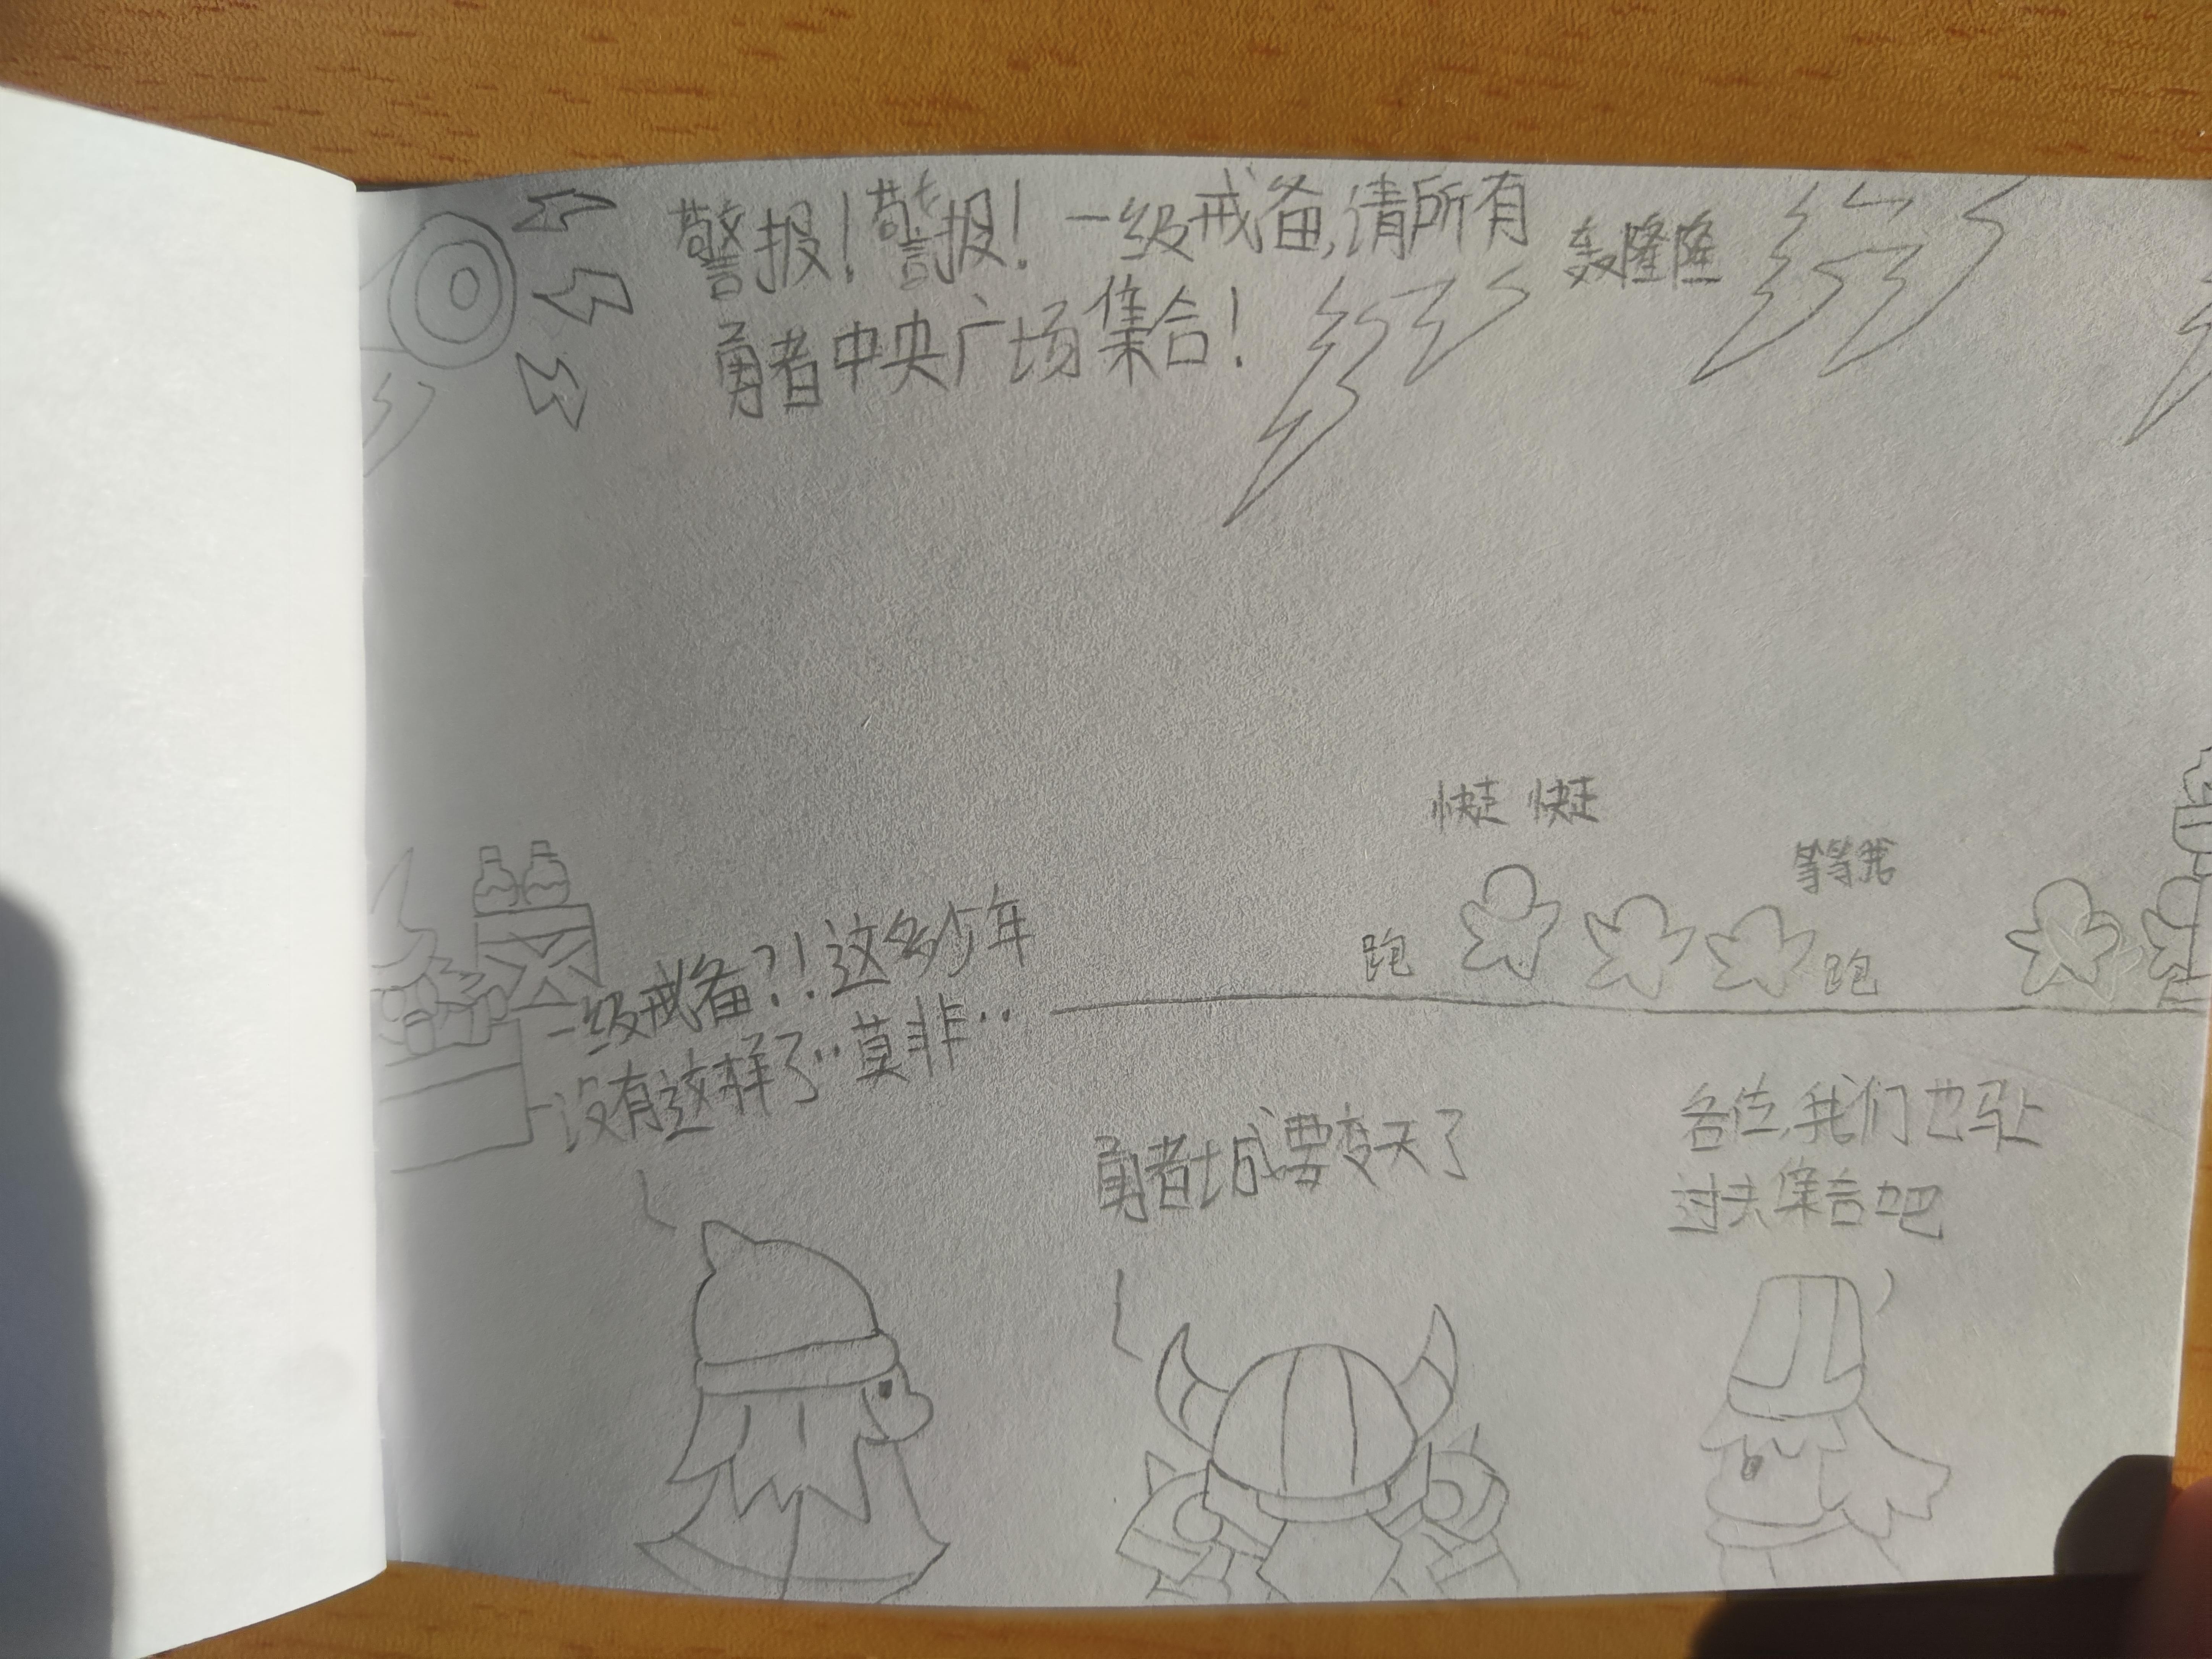 警报！警报！一级戒备，请所有
勇者中央广场集合！
轰隆隆
快走 快走
等等我
跑
跑
一级戒备？！这么多年
没有这样了··莫非··
勇者城要变天了
各位，我们也马上
过去集合吧